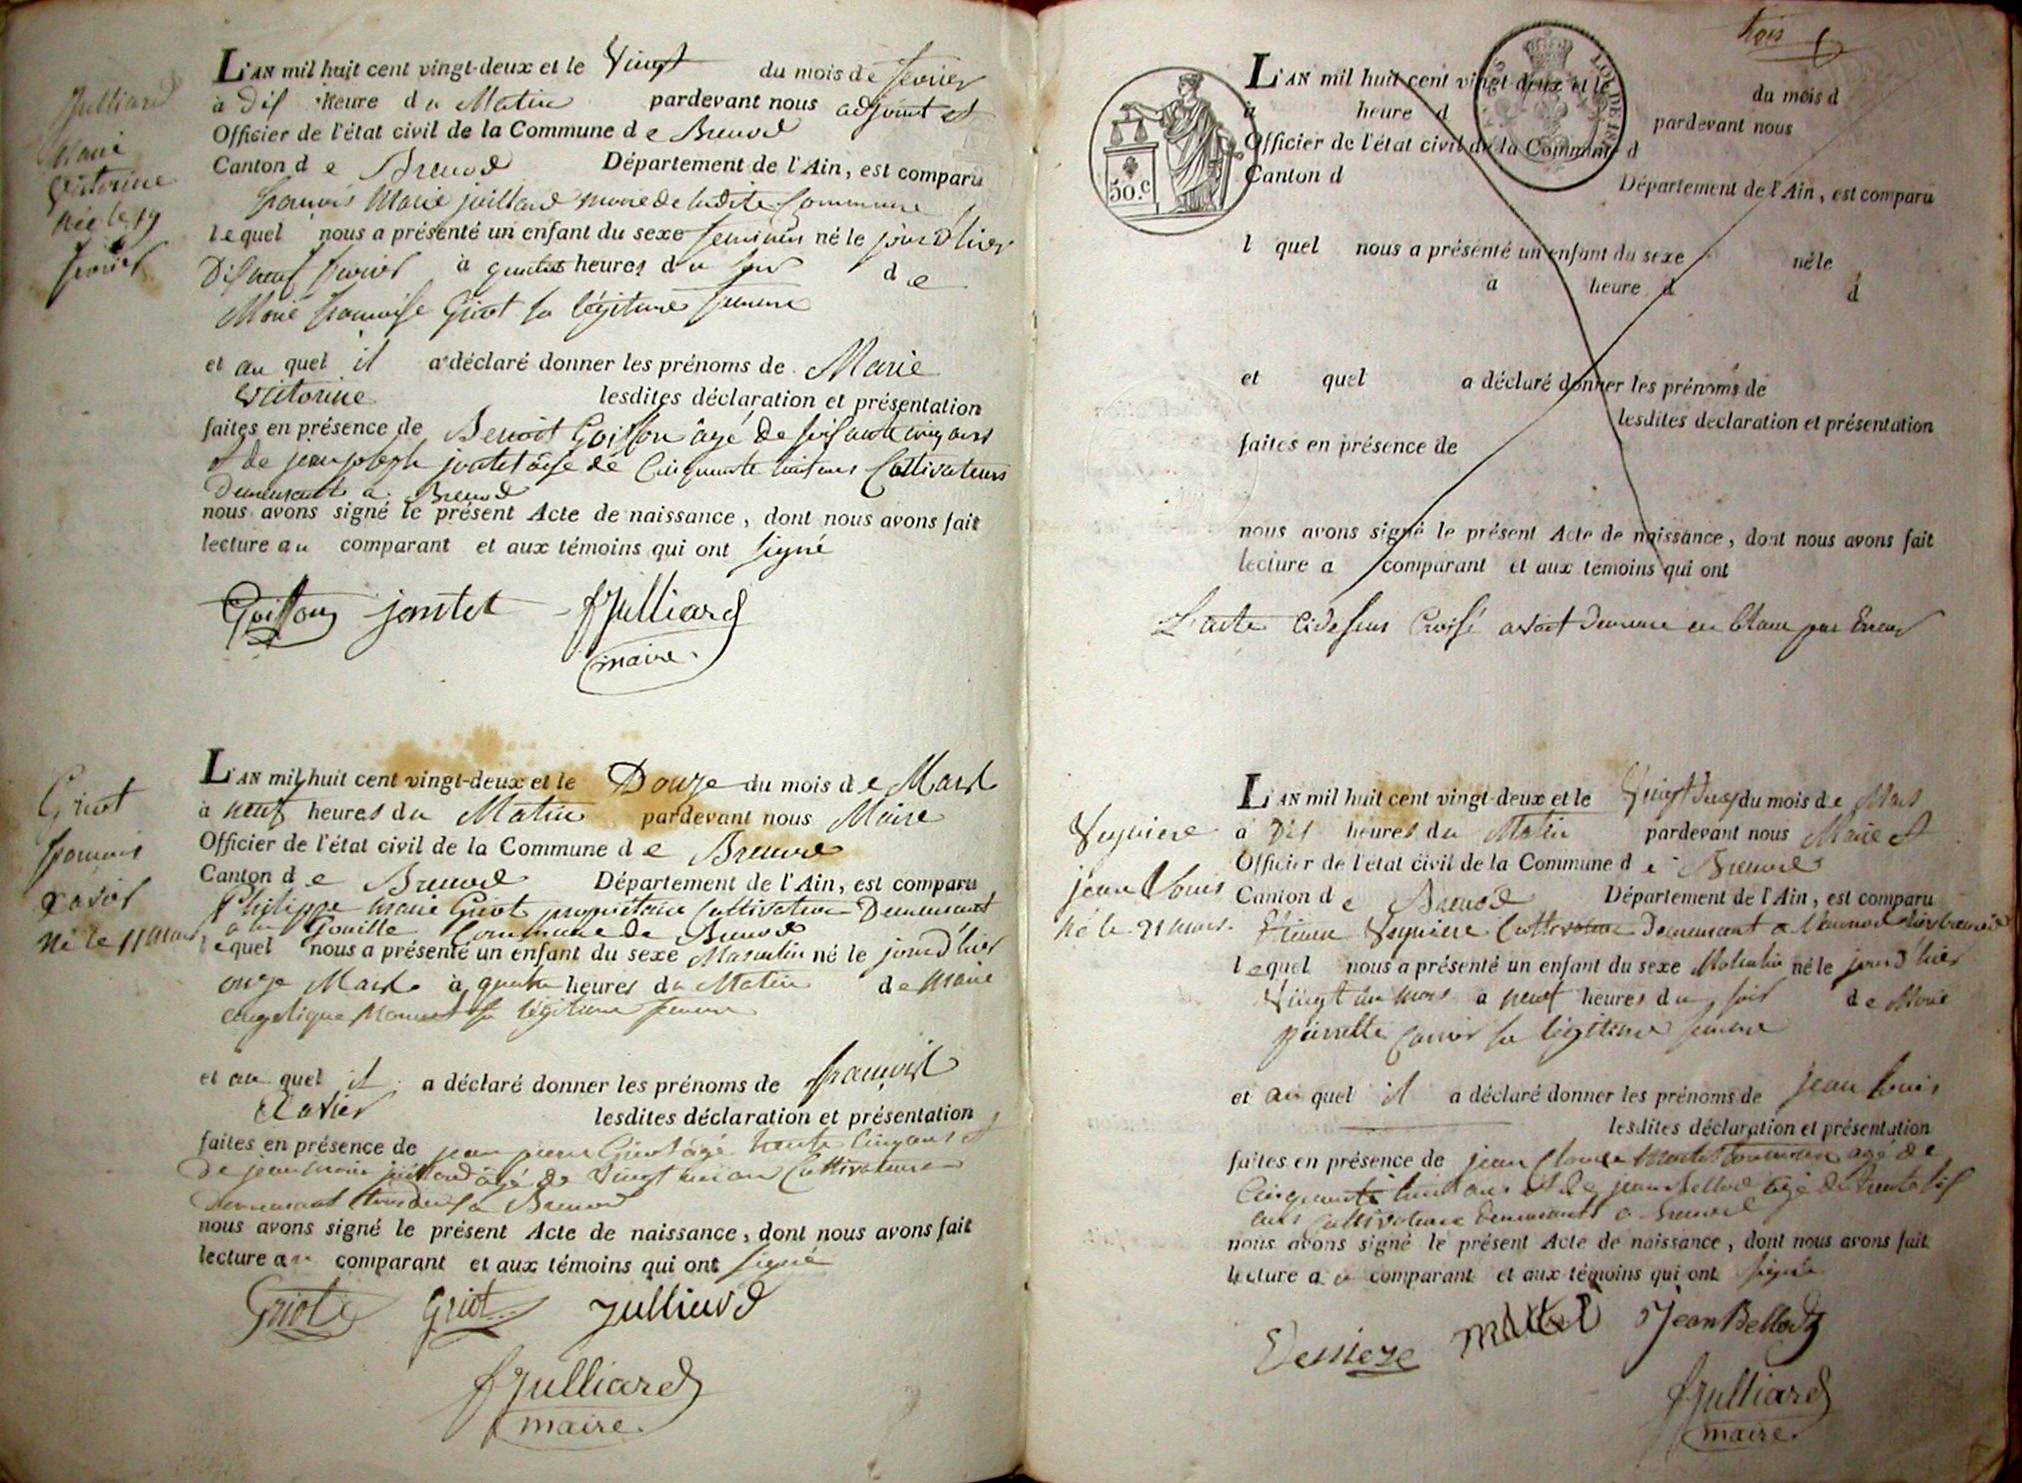 Julliard
Marie
Victorine
Née le 19
fevrier
L'AN mil huit cent vingt-deux et le Vingt du mois de fevrier
à Dix heure du Matin pardevant nous adjoint et
Officier de l'état civil de la Commune de Brenod
Canton de Brenod Département de l'Ain, est comparu
françois Marie juillard maire de ladite Commune
lequel nous a présenté un enfant du sexe feminin né le jour d'hier
Dixneuf fevrier à heures du soir de
Marie françoise Griot sa légitime femme
et au quel il a déclaré donner les prénoms de Marie
Victorine lesdites déclaration et présentation
faites en présence de Benoit Goiffon âgé de soixante cinq ans
et de jean joseph jontet âgé de Cinquante huit ans Cultivateurs
Demeurant a Brenod
nous avons signé le présent Acte de naissance, dont nous avons fait
lecture au comparant et aux témoins qui ont signé
Goiffon jontet fJulliard
maire.
Griot
françois
xavier
Né le 11 mars
L'AN mil huit cent vingt-deux et le Douze du mois de Mars
à neuf heures du Matin pardevant nous Maire
Officier de l'état civil de la Commune de Brenod
Canton de Brenod Département de l'Ain, est comparu
Philippe Marie Griot propriétaire Cultivateur Demeurant
a la Gouille Commune de Brenod
lequel nous a présenté un enfant du sexe Masculin né le jour d'hier
onze Mars à quatre heures du Matin de Marie
angelique sa légitime femme
et au quel il a déclaré donner les prénoms de françois
Xavier lesdites déclaration et présentation
faites en présence de jean pierre Griot âgé trente Cinq ans et
De jean marie juillard âgé de Vingt ans Cultivateurs
Demeurant tous deux a Brenod
nous avons signé le présent Acte de naissance, dont nous avons fait
lecture au comparant et aux témoins qui ont signé
Griot Griot Julliard
fJulliard
maire.
trois
50.c
LOI DE
L'AN mil huit cent vingt-deux et le du mois d
à heure d pardevant nous
Officier de l'état civil de la Commune d
Canton d Département de l'Ain, est comparu
l quel nous a présenté un enfant du sexe né le
à heure d d
et quel a déclaré donner les prénoms de
lesdites déclaration et présentation
faites en présence de
nous avons signé le présent Acte de naissance, dont nous avons fait
lecture a comparant et aux témoins qui ont
L'acte cidessus Croisé avoit demeuré en blanc par Erreur
jean Louis
Né le 21 mars
L'AN mil huit cent vingt-deux et le Vingt deux du mois de Mars
à Dix heures du Matin pardevant nous Maire et
Officier de l'état civil de la Commune de Brenod
Canton de Brenod Département de l'Ain, est comparu
Etienne Cultivateur Demeurant a
lequel nous a présenté un enfant du sexe Masculin né le jour d'hier
Vingt un mars à neuf heures du soir de Marie
pierrette sa légitime femme
et au quel il a déclaré donner les prénoms de jean Louis
lesdites déclaration et présentation
faites en présence de jean Claude agé de
Cinquante huit ans et de jean Bellod âgé de trente six
ans Cultivateurs demeurants a Brenod
nous avons signé le présent Acte de naissance, dont nous avons fait
lecture au comparant et aux témoins qui ont signé
Jean Bellod
fJulliard
maire.